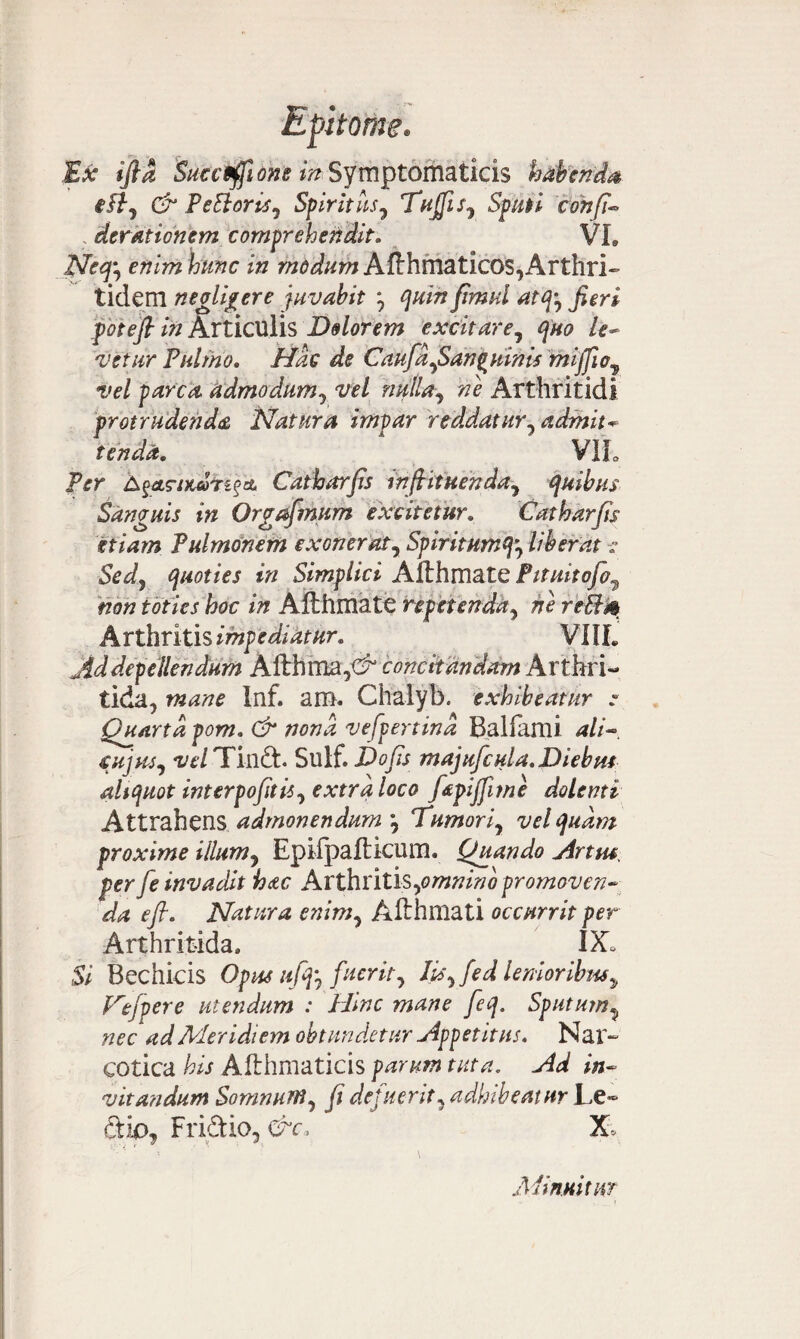 Epitome.
Ex iſtâ Succuſſione in Symptomaticis habenda
eſt, & Pectoris, Spiritûs, Tuſſis, Sputi conſi-
derationem comprehendit. VI.
Neq; enim hunc in modum Aſthmaticos, Arthri-
tidem negligere juvabit; quin ſimul atq; fieri
poteſt in Articulis Dolorem excitare, quo le-
vetur Pulmo. Hâc de Cauſâ, Sanguinis miſſio,
vel parca admodum, vel nulla, ne Arthritidi
protrudendæ Natura impar reddatur, admit-
tenda. VII.
Per Δραστικώτερα Catharſis inſtituenda, quibus
Sanguis in Orgaſmum excitetur. Catharſis
etiam Pulmonem exonerat, Spiritumq; liberat:
Sed, quoties in Simplici Aſthmate Pituitoſo,
non toties hoc in Aſthmate repetenda, ne rectà
Arthritis impediatur. VIII.
Ad depellendum Aſthma, & concitandam Arthri-
tida, mane Inf. am. Chalyb. exhibeatur:
Quartâ pom. & nonâ veſpertinâ Balſami ali-
cujus, vel Tinct. Sulf. Doſis majuſcula. Diebus
aliquot interpoſitis, extra loco ſæpiſſime dolenti
Attrahens admonendum; Tumori, vel quàm
proxime illum, Epiſpaſticum. Quando Artus
per ſe invadit hæc Arthritis, omnino promoven-
da eſt. Natura enim, Aſthmati occurrit per
Arthritida. IX.
Si Bechicis Opus uſq; fuerit, Iis, ſed lenioribus,
Veſpere utendum: Hinc mane ſeq. Sputum,
nec ad Meridiem obtundetur Appetitus. Nar-
cotica his Aſthmaticis parum tuta. Ad in-
vitandum Somnum, ſi defuerit, adhibeatur Le-
ctio, Frictio, &c. X.
Minuitur